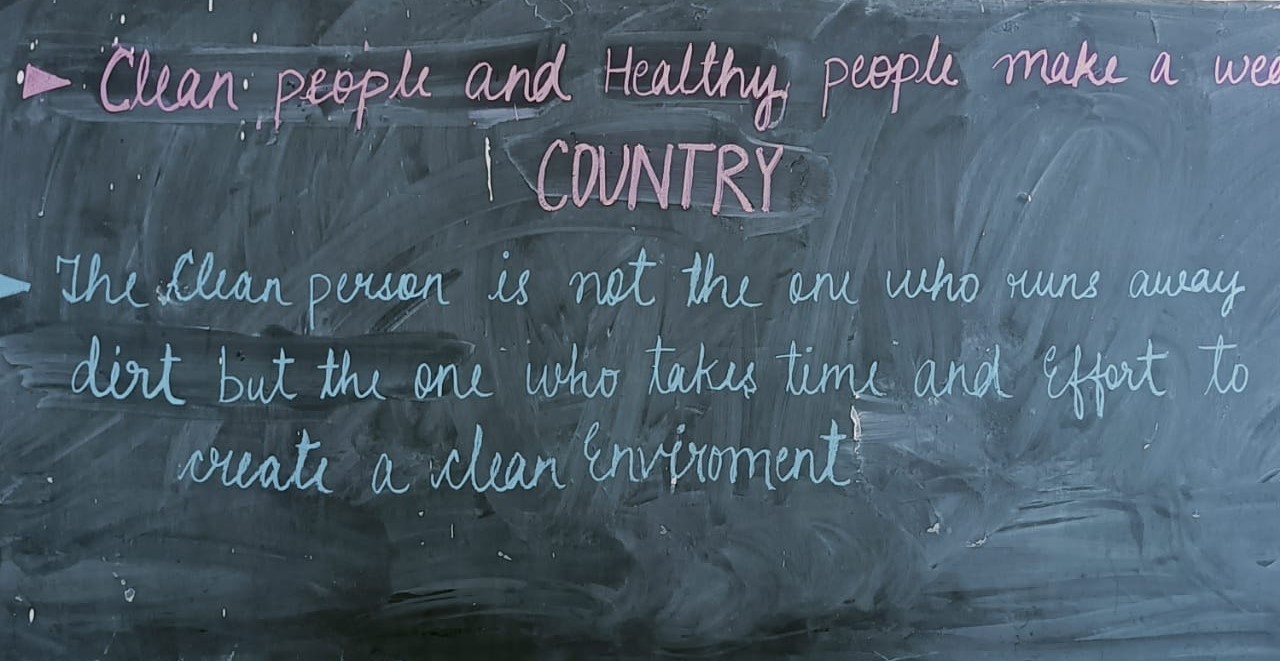 Clean people and Healthy people make a
COUNTRY
The Clean person is not the one who runs away
dirt but the one who takes time and Effort to
create a clean Enviroment